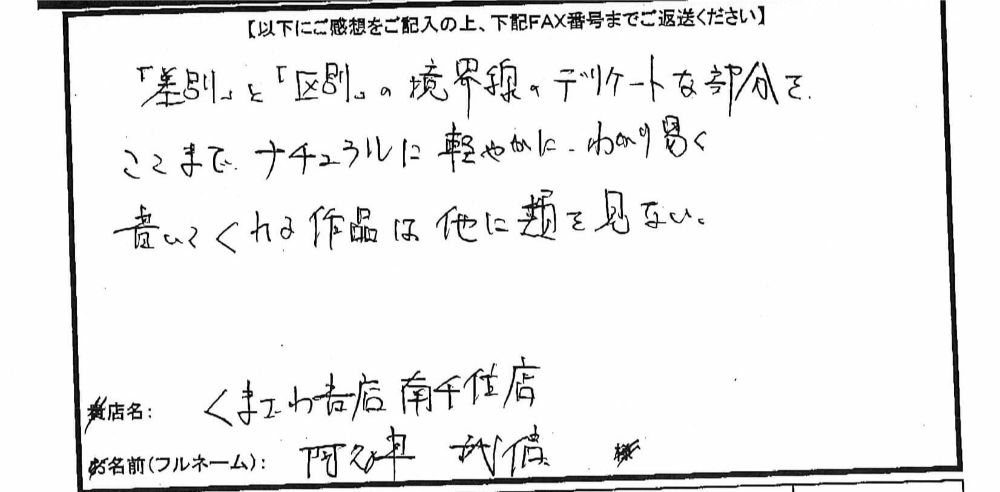 【以下にご感想をご記入の上、下記FAX番号までご返送ください】
「差別」と「区別」の境界線のデリケートな部分を
ここまで、ナチュラルに軽やかに、わかり易く
書いてくれる作品は他に類を見ない。
貴店名: くまざわ書店 南千住店
お名前(フルネーム): 阿久津 武信 様